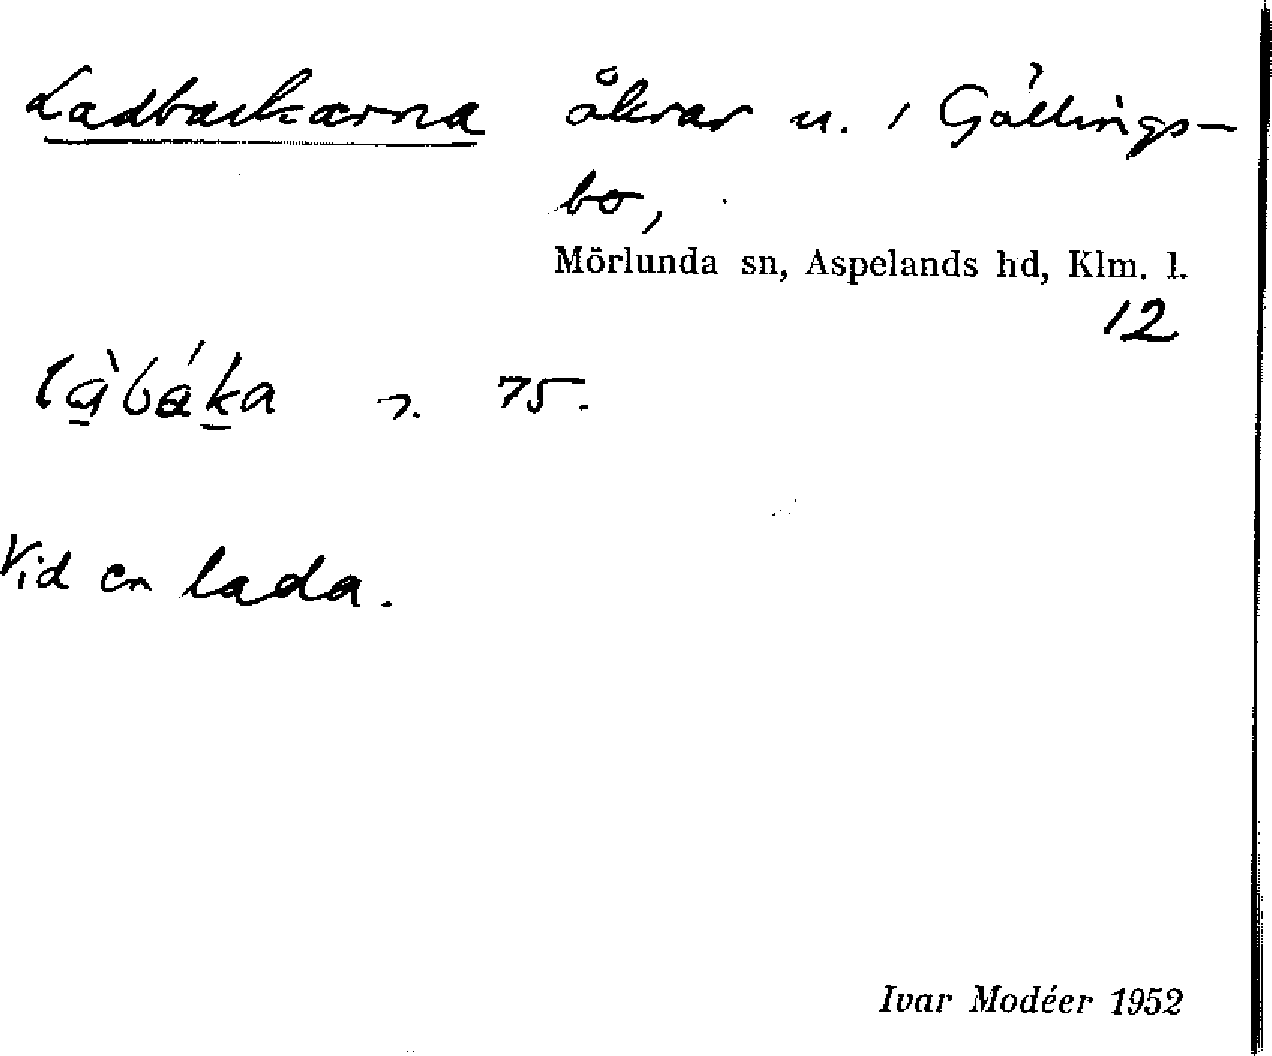 Ladbackarna åkrar u. 1 Gällings-
bo,
Mörlunda sn, Aspelands hd, Klm. l.
12
là̱báḵa 75.
Vid en lada.
Ivar Modéer 1952